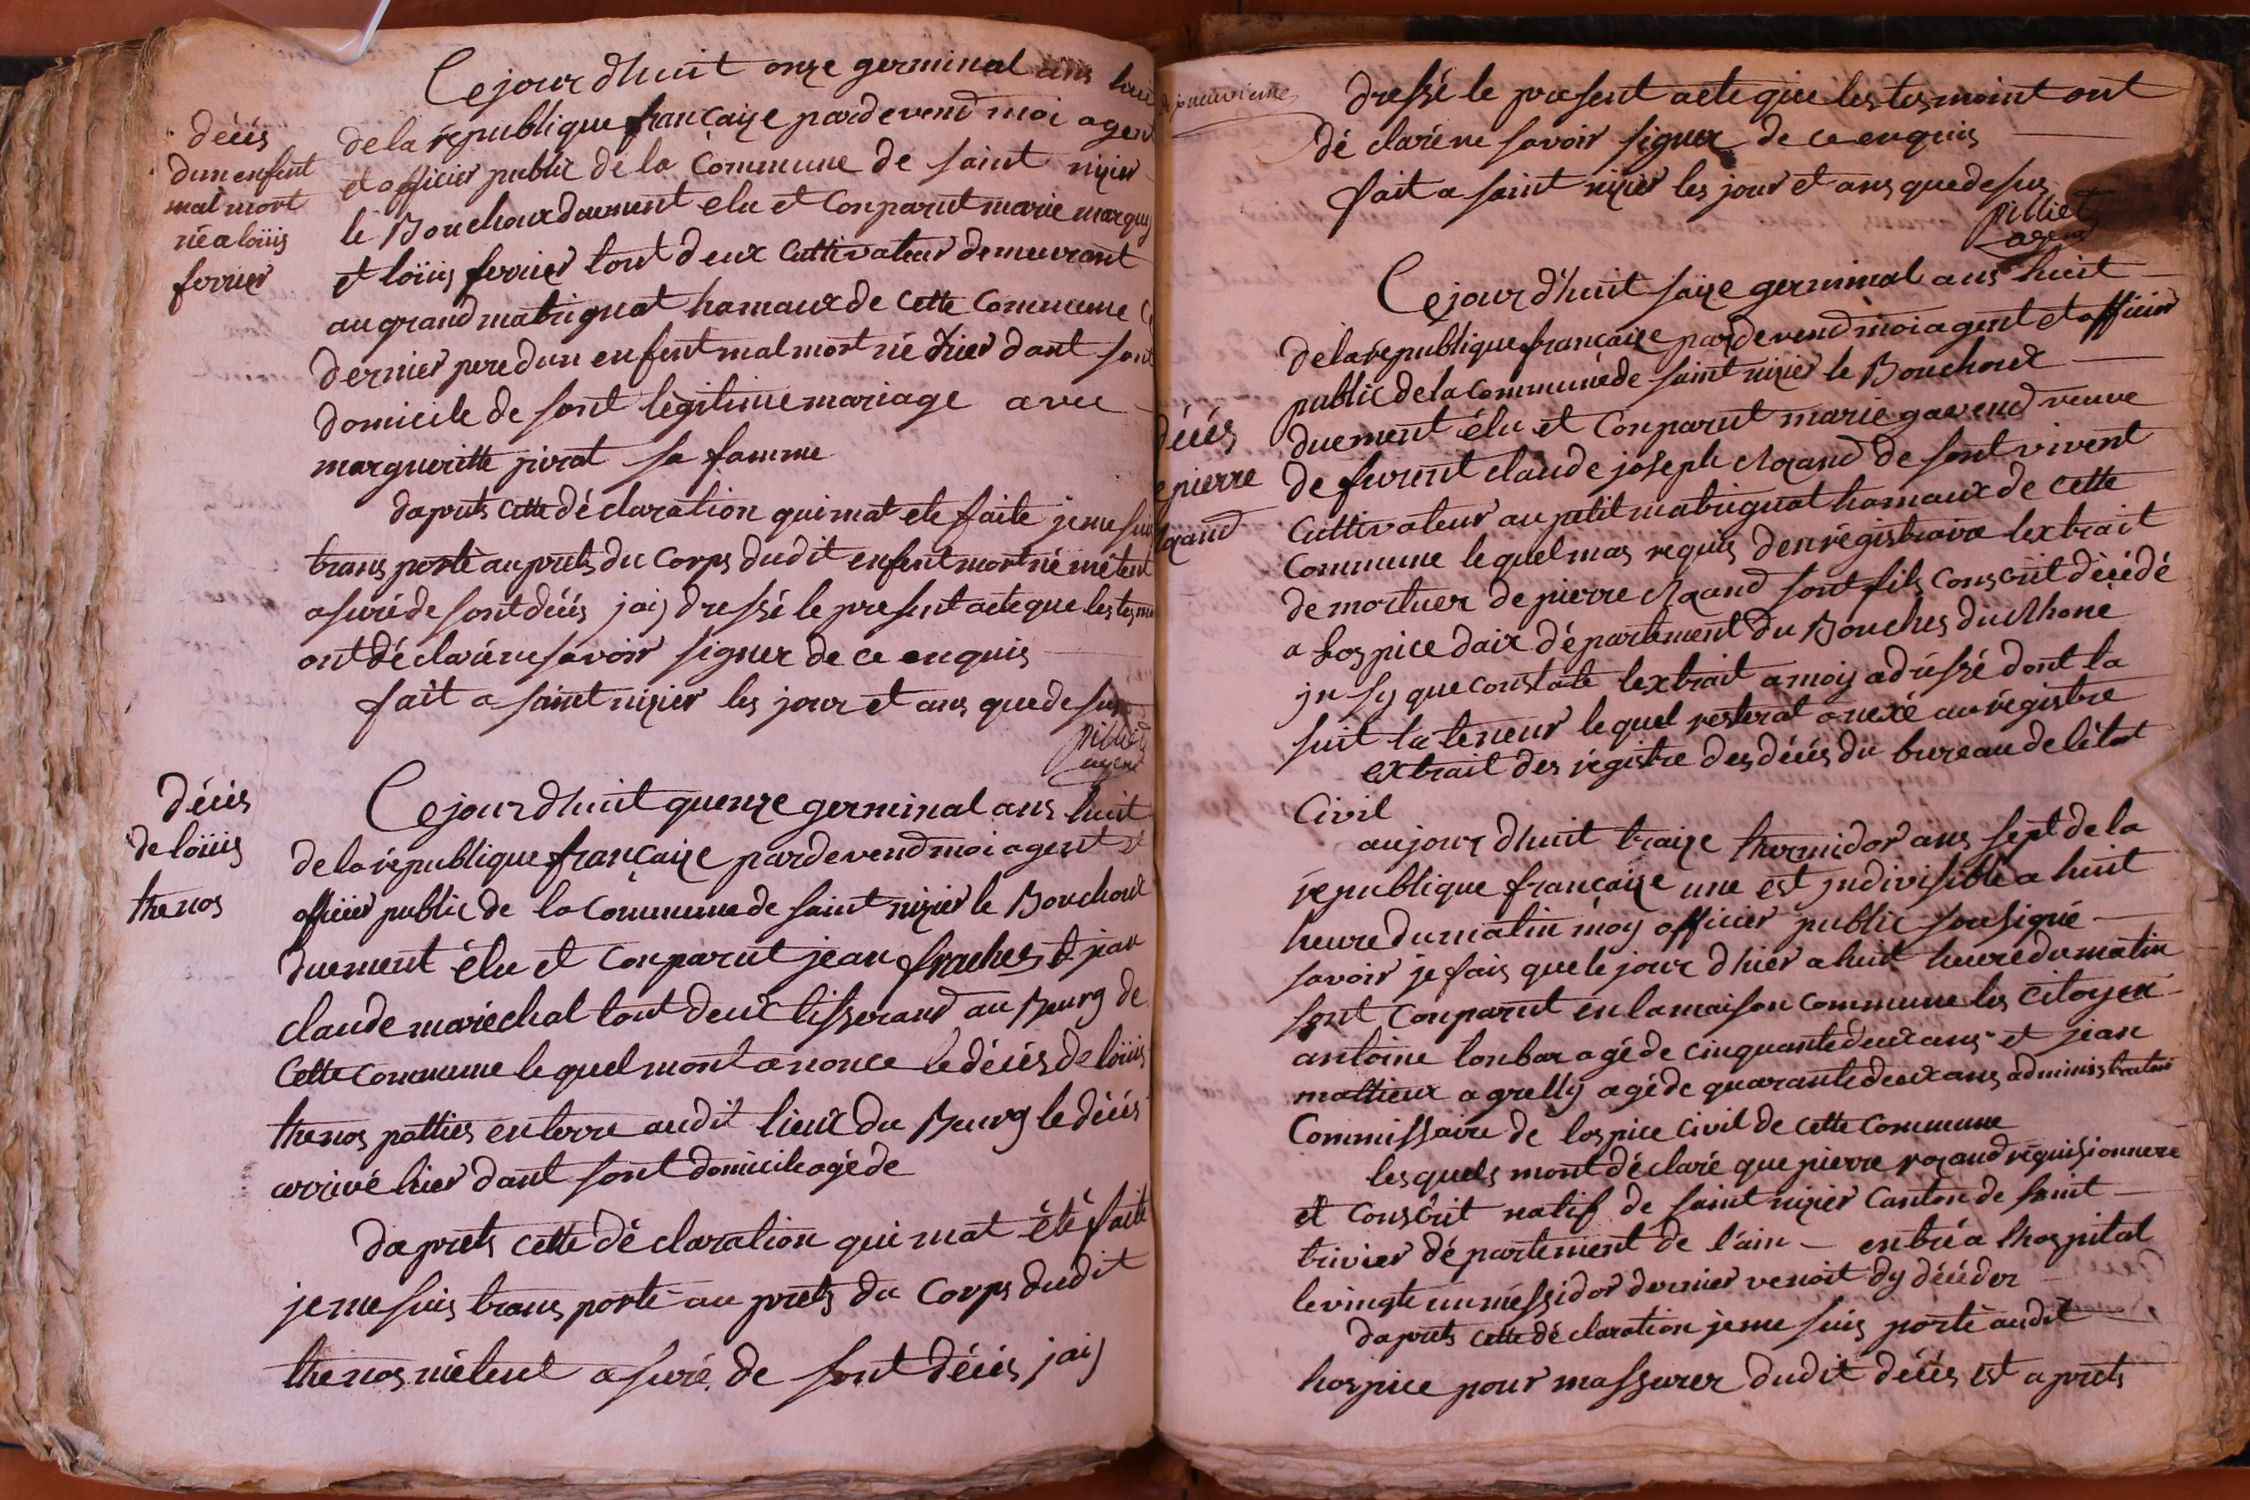 Cejour dhuit onze germinal ans huit
décés
dun enfent
mal mort
né a loüis
ferrier
de la republique françaize pardevend moi agent
et officier public de la Commune de saint nizier
le Bouchoux duement elu et Conparut marie marquis
et loüis ferrier tout deux Cultivateur demeurant
au grand matrignat hamaux de cette Commune Ce
dernier pere dun enfent mal mort né d'hier dant sont
domicile de sont légitime mariage avec
margueritte pirat sa famme
daprets cette déclaration qui mat ete faite je me suis
trans porté au prets du Corps dudit enfent mort né métent
asuré de sont décés jaij dressé le present acte que les tesmo
ont déclaré ne savoir signer de ce enquis
fait a saint nizier les jour et ans que desus
pilliet
agent
décés
de loüis
thenos
Cejour dhuit quenze germinal ans huit
de la republique françaize pardevend moi agent et
officier public de la Commune de saint nizier le Bouchoux
duement élu et Conparut jean fraches et jean
claude maréchal tout deux tisserand au Bourg de
Cette commune le quel mont anonce le décés de loüis
thenos pottier en terre audit lieux du Bourg le décés
arrivé hier dant sont domicile agé de
daprets cette déclaration qui mat été faite
je me suis trans porté au prets du Corps dudit
thenos métent asuré de sont décés jaij
dressé le present acte que les tesmoint ont
déclaré ne savoir signer de ce enquis
fait a saint nizier les jour et ans que desus
pilliet
agent
Cejour d'huit saize germinal ans huit
de la republique françaize pardevend moi agent et officier
public de la Commune de saint nizier le Bouchoux
décés
e pierre
Rozand
duement élu et Conparut marie gavend veuve
de furent claude joseph Rozand de sont vivent
Cultivateur au petit matrignat hamaux de cette
Commune le quel mas requis denrégistrare lextrait
de mortuer de pierre Rozand sont fils Conscrit décédé
a hospice daix département du Bouches du Rhone
jn sy que constate lextrait a moij adréssé dont la
suit la teneur le quel resterat anexé au régistre
extrait des régistre des décés du bureau de létat
Civil
aujour dhuit traize thermidor ans sept de la
republique françaize une est jndivisible a huit
heure du matin moij officier public sousigné
savoir je fais que le jour dhier a huit heure du matin
sont Conparut en la maison commune les Citoyen
antoine lonbar agé de cinquante deux ans et jean
mattieux agrellÿ agé de quarante deux ans administrateur
Commissaire de lospice Civil de cette Commune
les quels mont déclaré que pierre rozand réquisionnere
et conscrit natif de saint nizier Canton de saint
trivier département de l'ain — entré a lhospital
le vingte un messidor dernier venoit dy décéder
daprets cette déclaration je me suis porté audit
hospice pour massurer dudit décés est aprets